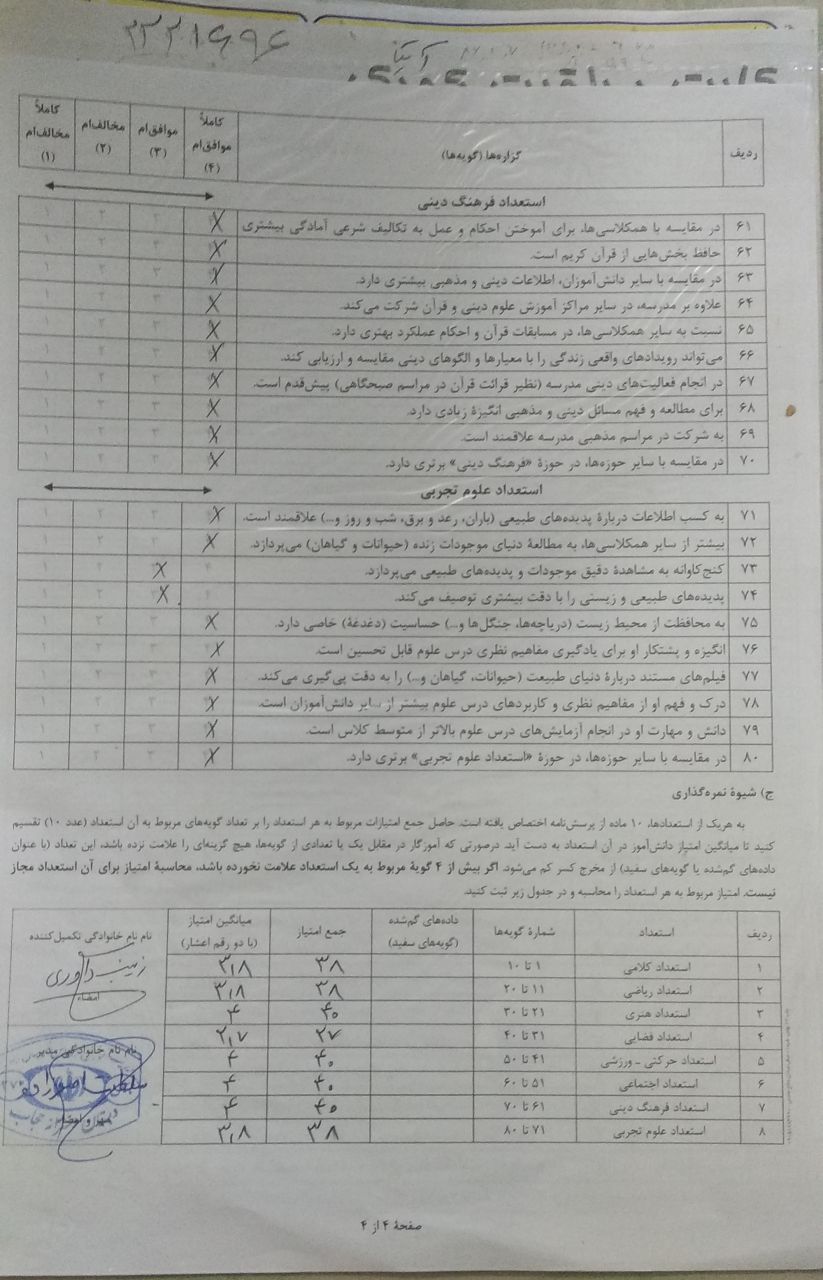 ۳۳۲۱۶۹۶
ردیف گزاره‌ها (گویه‌ها) کاملاً موافق‌ام (۴) موافق‌ام (۳) مخالف‌ام (۲) کاملاً مخالف‌ام (۱)
استعداد فرهنگ دینی
۶۱ در مقایسه با همکلاسی‌ها، برای آموختن احکام و عمل به تکالیف شرعی آمادگی بیشتری X ۳ ۲ ۱
۶۲ حافظ بخش‌هایی از قرآن کریم است. X ۳ ۲ ۱
۶۳ در مقایسه با سایر دانش‌آموزان، اطلاعات دینی و مذهبی بیشتری دارد. X ۳ ۲ ۱
۶۴ علاوه بر مدرسه، در سایر مراکز آموزش علوم دینی و قرآن شرکت می‌کند. X ۳ ۲ ۱
۶۵ نسبت به سایر همکلاسی‌ها، در مسابقات قرآن و احکام عملکرد بهتری دارد. X ۳ ۲ ۱
۶۶ می‌تواند رویدادهای واقعی زندگی را با معیارها و الگوهای دینی مقایسه و ارزیابی کند. X ۳ ۲ ۱
۶۷ در انجام فعالیت‌های دینی مدرسه (نظیر قرائت قرآن در مراسم صبحگاهی) پیش‌قدم است. X ۳ ۲ ۱
۶۸ برای مطالعه و فهم مسائل دینی و مذهبی انگیزهٔ زیادی دارد. X ۳ ۲ ۱
۶۹ به شرکت در مراسم مذهبی مدرسه علاقمند است. X ۳ ۲ ۱
۷۰ در مقایسه با سایر حوزه‌ها، در حوزهٔ «فرهنگ دینی» برتری دارد. X ۳ ۲ ۱
استعداد علوم تجربی
۷۱ به کسب اطلاعات دربارهٔ پدیده‌های طبیعی (باران، رعد و برق، شب و روز و...) علاقمند است. X ۳ ۲ ۱
۷۲ بیشتر از سایر همکلاسی‌ها، به مطالعهٔ دنیای موجودات زنده (حیوانات و گیاهان) می‌پردازد. X ۳ ۲ ۱
۷۳ کنج‌کاوانه به مشاهدهٔ دقیق موجودات و پدیده‌های طبیعی می‌پردازد. ۴ X ۲ ۱
۷۴ پدیده‌های طبیعی و زیستی را با دقت بیشتری توصیف می‌کند. ۴ X ۲ ۱
۷۵ به محافظت از محیط زیست (دریاچه‌ها، جنگل‌ها و...) حساسیت (دغدغهٔ) خاصی دارد. X ۳ ۲ ۱
۷۶ انگیزه و پشتکار او برای یادگیری مفاهیم نظری درس علوم قابل تحسین است. X ۳ ۲ ۱
۷۷ فیلم‌های مستند دربارهٔ دنیای طبیعت (حیوانات، گیاهان و...) را به دقت پی‌گیری می‌کند. X ۳ ۲ ۱
۷۸ درک و فهم او از مفاهیم نظری و کاربردهای درس علوم بیشتر از سایر دانش‌آموزان است. X ۳ ۲ ۱
۷۹ دانش و مهارت او در انجام آزمایش‌های درس علوم بالاتر از متوسط کلاس است. X ۳ ۲ ۱
۸۰ در مقایسه با سایر حوزه‌ها، در حوزهٔ «استعداد علوم تجربی» برتری دارد. X ۳ ۲ ۱
ج) شیوهٔ نمره‌گذاری
به هریک از استعدادها، ۱۰ ماده از پرسش‌نامه اختصاص یافته است. حاصل جمع امتیازات مربوط به هر استعداد را بر تعداد گویه‌های مربوط به آن استعداد (عدد ۱۰) تقسیم
کنید تا میانگین امتیاز دانش‌آموز در آن استعداد به دست آید. درصورتی که آموزگار در مقابل یک یا تعدادی از گویه‌ها، هیچ گزینه‌ای را علامت نزده باشد، این تعداد (با عنوان
داده‌های گم‌شده یا گویه‌های سفید) از مخرج کسر کم می‌شود. اگر بیش از ۴ گویهٔ مربوط به یک استعداد علامت نخورده باشد، محاسبهٔ امتیاز برای آن استعداد مجاز
نیست. امتیاز مربوط به هر استعداد را محاسبه و در جدول زیر ثبت کنید.
ردیف استعداد شمارهٔ گویه‌ها داده‌های گم‌شده (گویه‌های سفید) جمع امتیاز میانگین امتیاز (با دو رقم اعشار) نام نام خانوادگی تکمیل‌کننده
۱ استعداد کلامی ۱ تا ۱۰ ۳۸ ۳٫۸
۲ استعداد ریاضی ۱۱ تا ۲۰ ۳۸ ۳٫۸ امضاء
۳ استعداد هنری ۲۱ تا ۳۰ ۴۰ ۴
۴ استعداد فضایی ۳۱ تا ۴۰ ۲۷ ۲٫۷ نام نام خانوادگی مدیر
۵ استعداد حرکتی - ورزشی ۴۱ تا ۵۰ ۴۰ ۴
۶ استعداد اجتماعی ۵۱ تا ۶۰ ۴۰ ۴
۷ استعداد فرهنگ دینی ۶۱ تا ۷۰ ۴۰ ۴
۸ استعداد علوم تجربی ۷۱ تا ۸۰ ۳۸ ۳٫۸
صفحهٔ ۴ از ۴